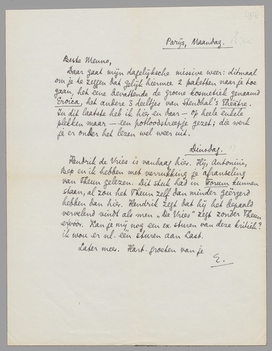 Parijs, Maandag.
Beste Menno,
Daar gaat mijn dagelijksche missive weer: ditmaal
om je te zeggen dat gelijk hiermee 2 pakketten naar je toe
gaan, het eene bevattende de groene kosmetisch genaamd
Eroica, het andere 3 deeltjes van Stendhal's Théâtre.
In dit laatste heb ik hier en daar — op heele enkele
plekken maar — een potloodstreepje gezet; die werk
je er onder het lezen wel weer uit.
Dinsdag.
Hendrik de Vries is vandaag hier. Hij, Antonini,
Bep en ik hebben met verrukking je afranseling
van Theun gelezen. Dit stuk had in Forum kunnen
staan, al zou het Theun zelf dan minder gezeerd
hebben dan hier. Hendrik zegt dat hij het bepaald
vervelend vindt als men "De Vries" zegt zonder Theun
ervoor. Kan je mij nog een ex sturen van deze kritiek?
ik wou er nl. een sturen aan Last.
Later meer. Hart. groeten van je
E.